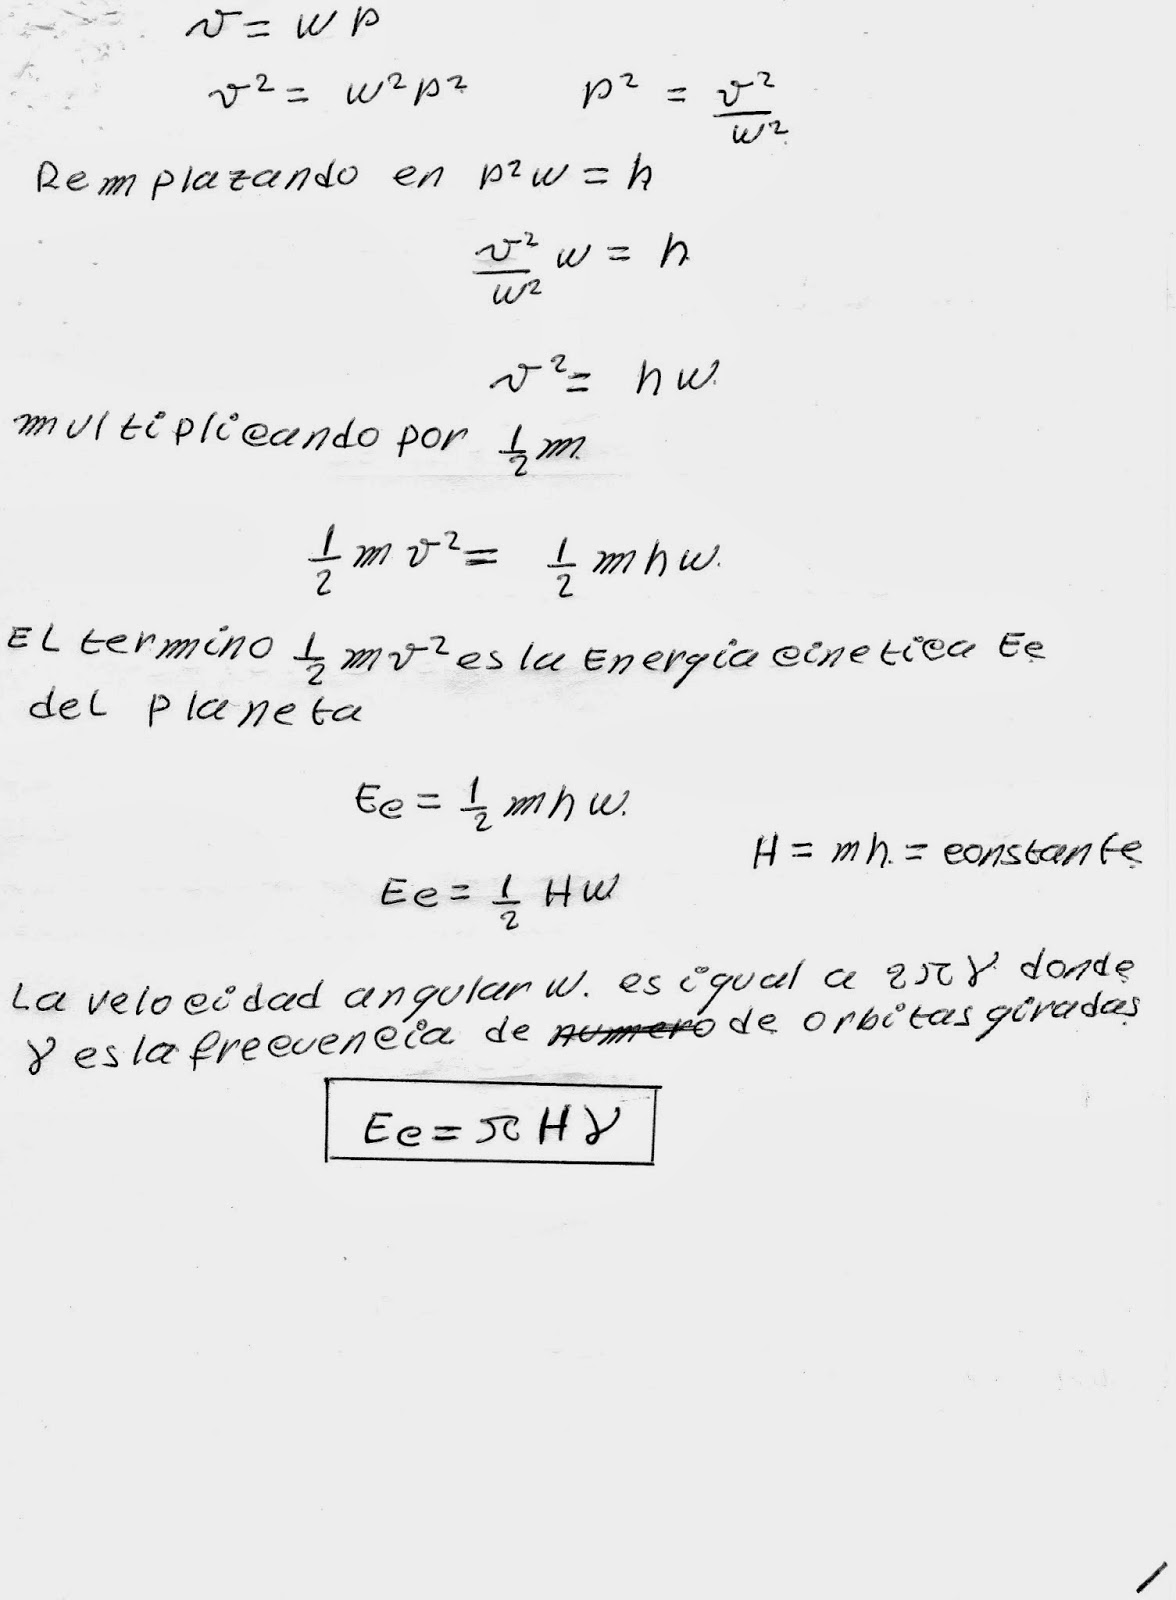 v = w p
v² = w² p²   p² = v²/w²
Remplazando en p²w = h
v²/w² w = h
v² = hw.
multiplicando por 1/2 m
1/2 m v² = 1/2 m h w.
EL termino 1/2 m v² es la Energia cinetica Ec
del planeta
Ec = 1/2 m h w.
H = m h. = constante
Ec = 1/2 H w
La velocidad angular w. es igual a 2πγ donde
γ es la frecuencia de numero de orbitas giradas
Ec = π H γ